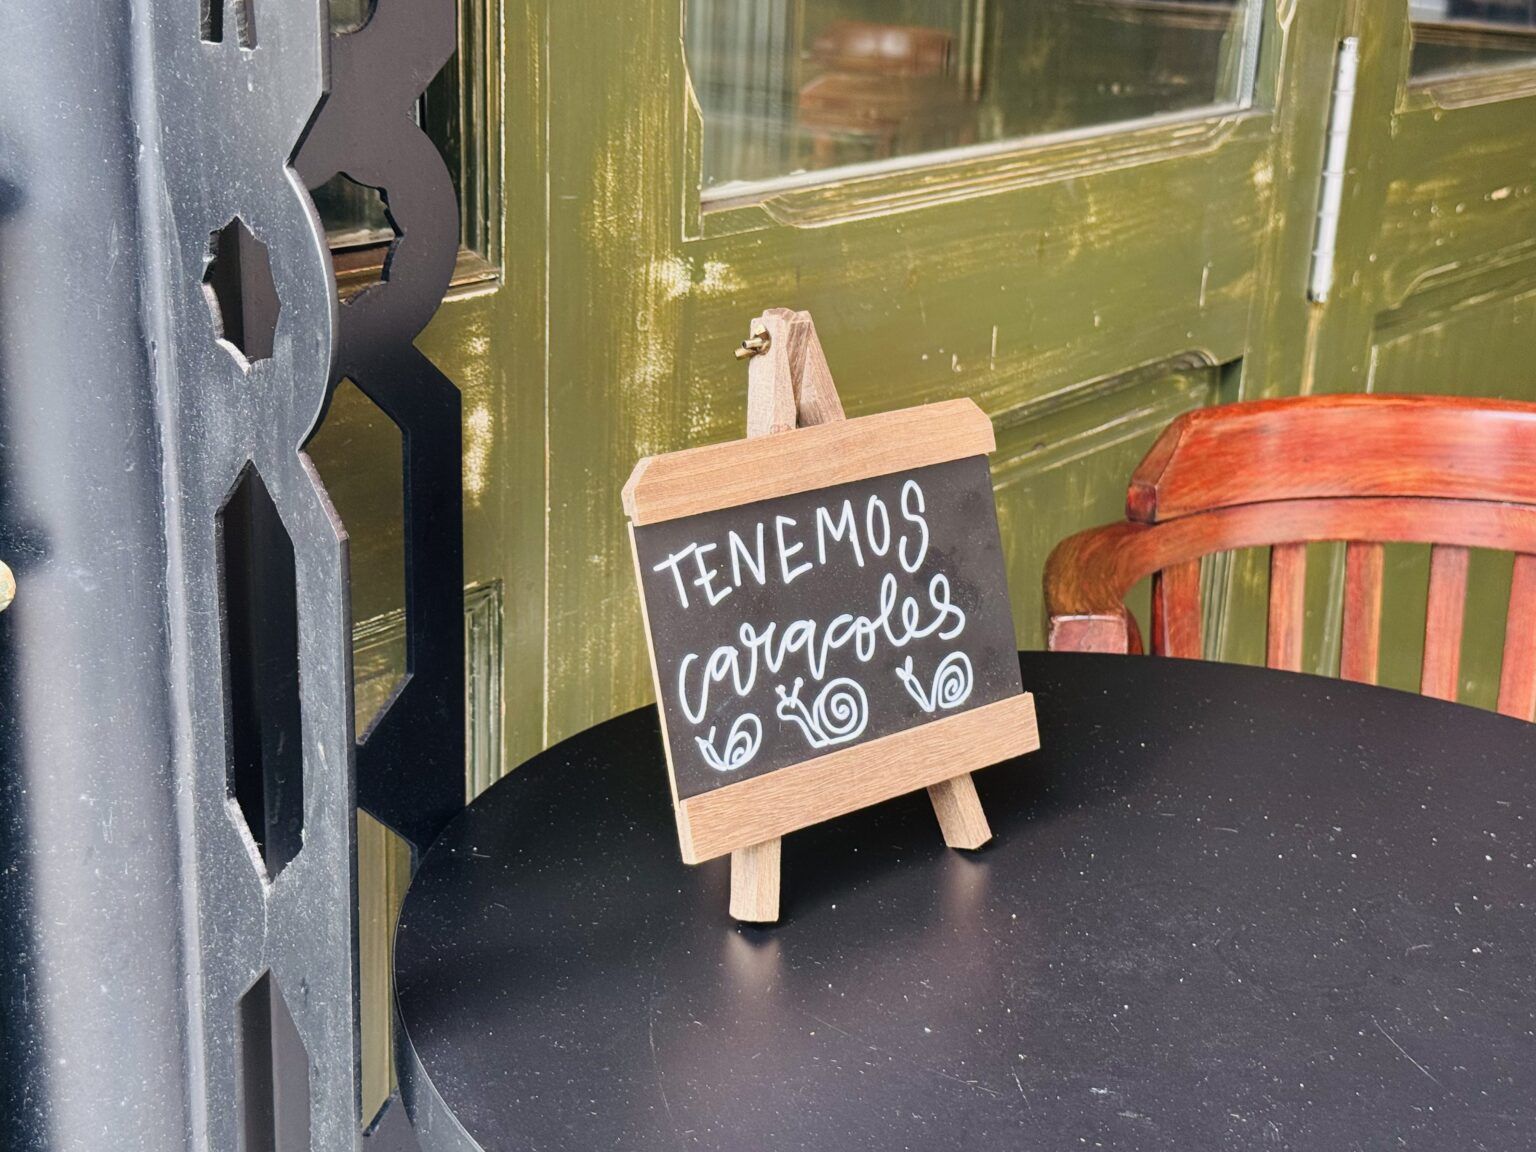 TENEMOS
caracoles